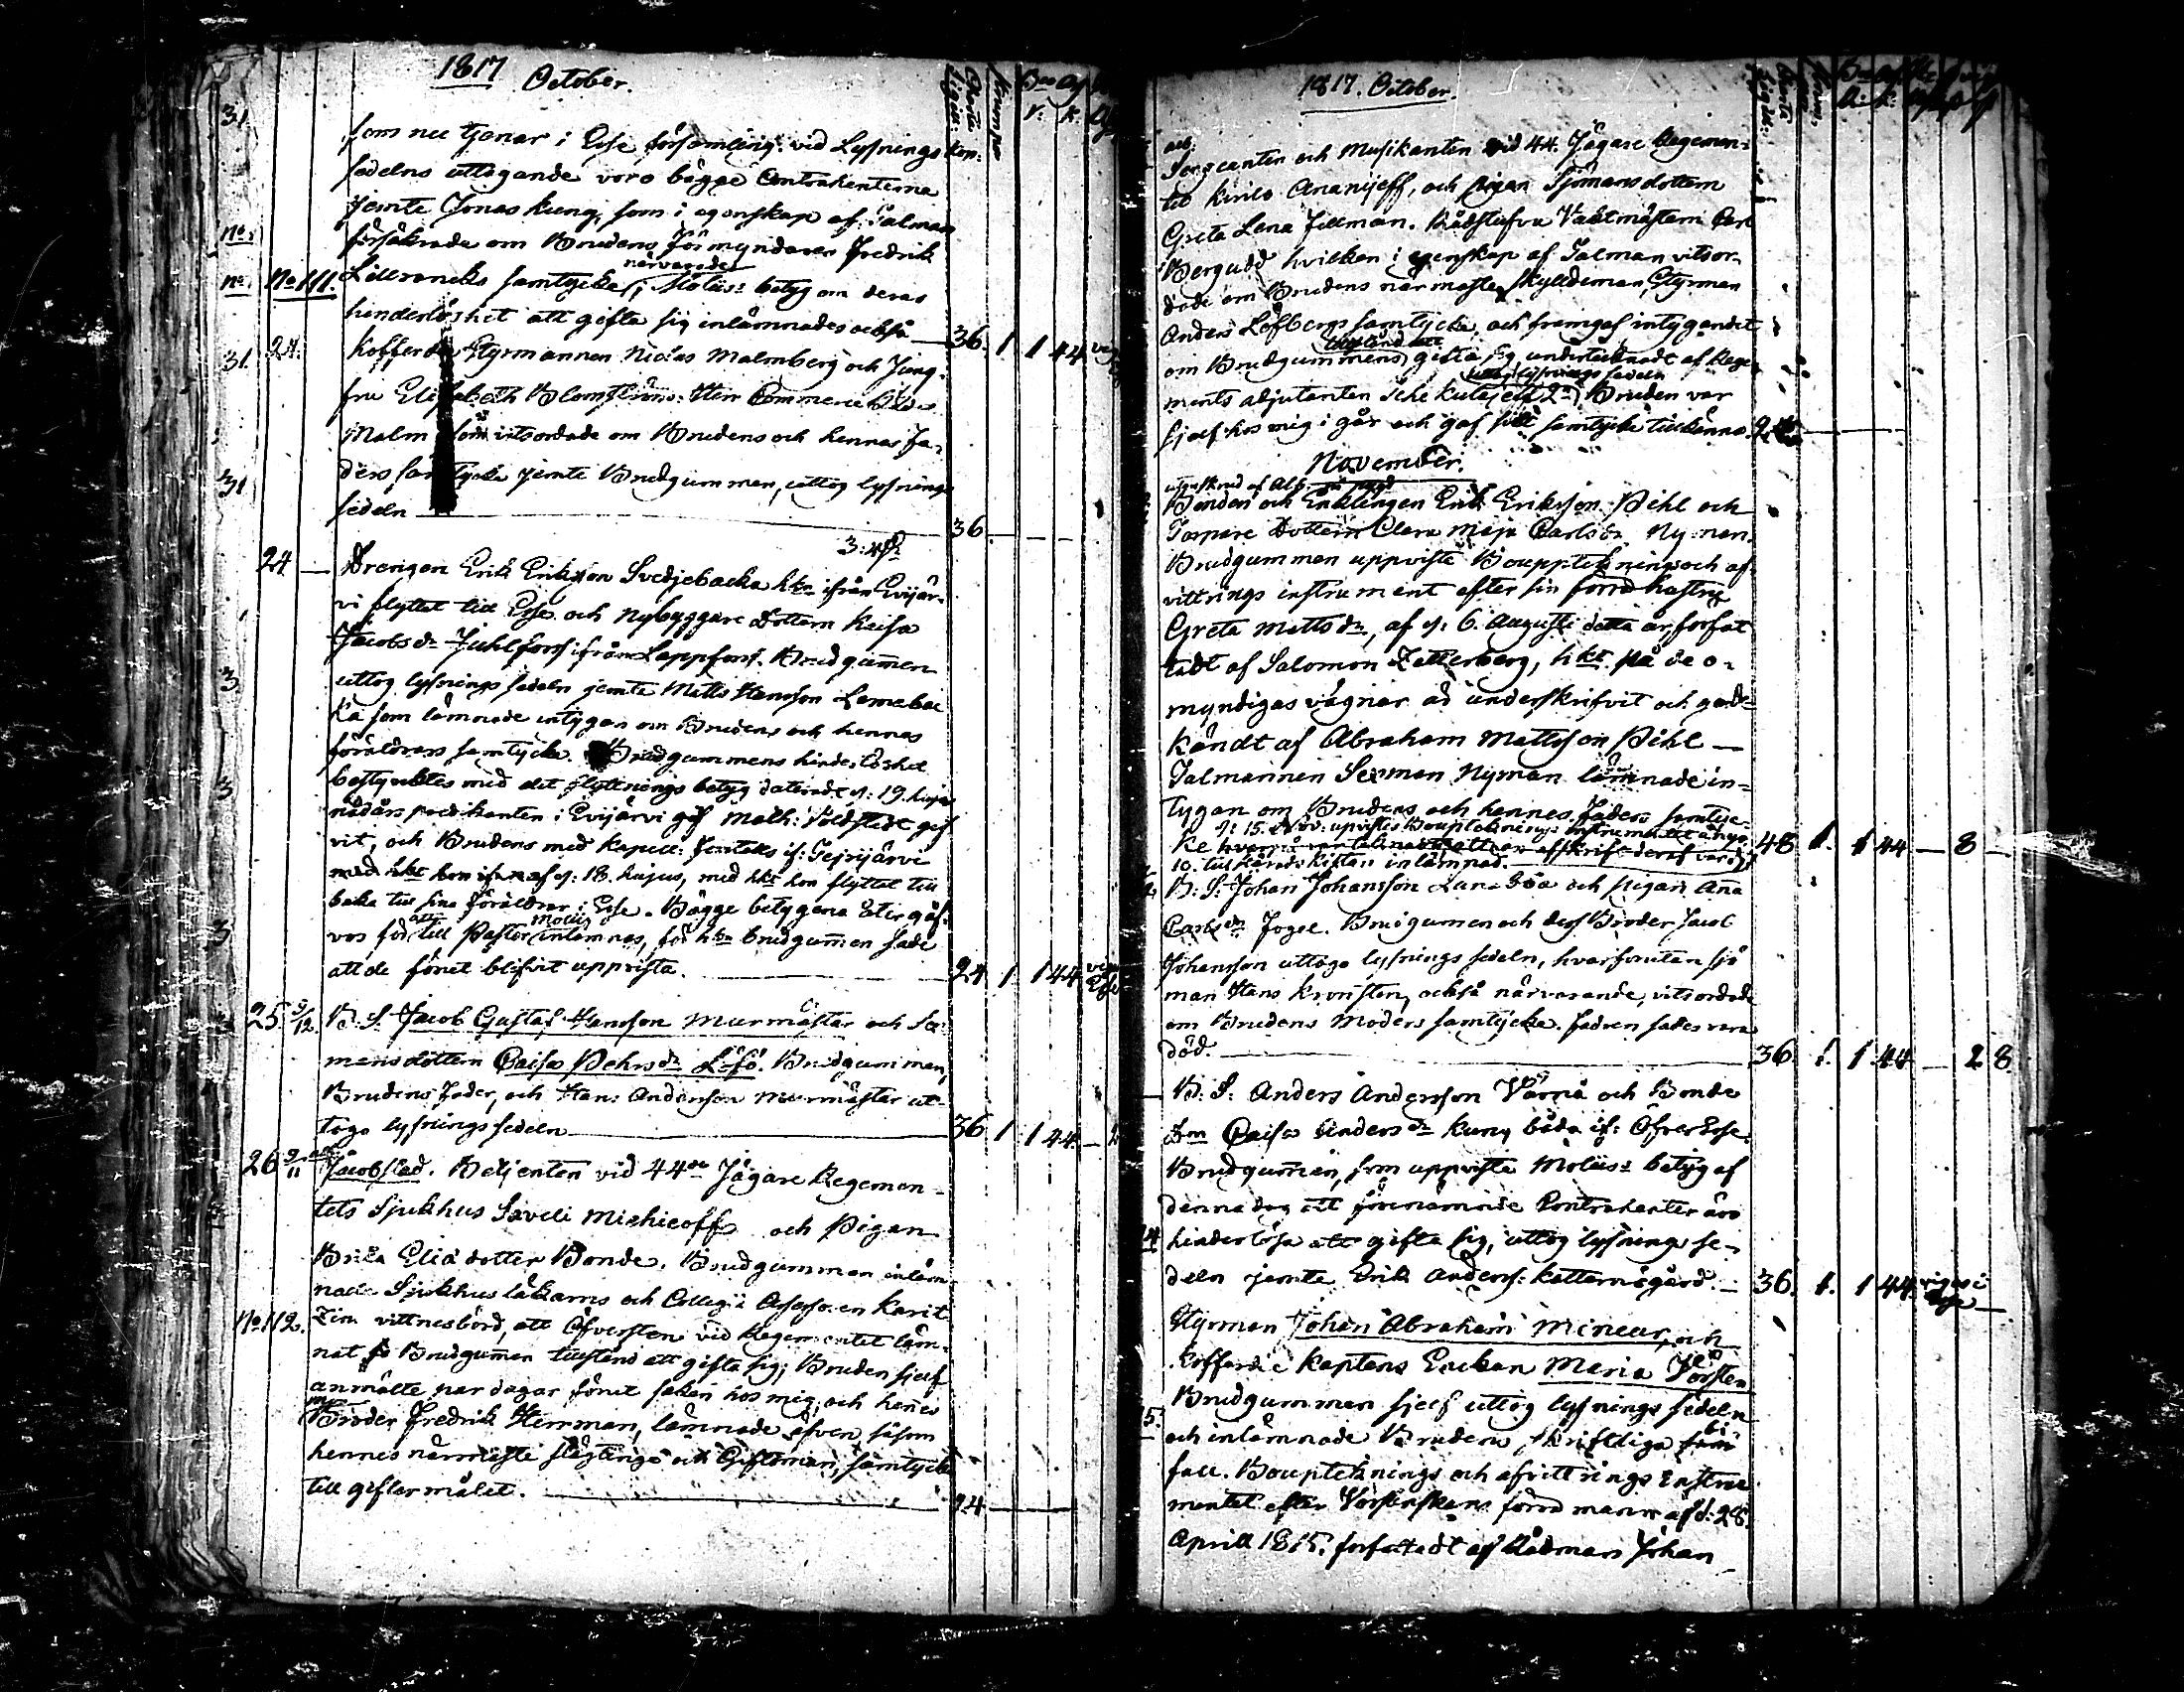 1817 October.
som nu tjenar i Esse församling. vid Lysnings
sedelns uttagande voro bägge Contrahenterna
jemte Jonas Kung, som i egenskap af Talman
försäkrade om Brudens Förmyndares Fredrik
närvarande
No 111. samtycke, Moliis: betyg om deras
hinderlöshet att gifta sig inlämnades också 36. 1 1 44
24. Kofferdie Styrmannen Nicolas Malmberg och Jung-
fru Elisabeth Blomström. Herr Commercie Rådet
Malm som vitsordade om Brudens och hennes Fa-
ders samtycke jemte Brudgumman, uttog lysnings
sedeln 36
24 Drengen Erik Eriksson Svedjebacka hkn ifrån Evijär-
vi flyttat till Esse och Nybyggare Dottern Kaisa
Jacobs dr Juhlfors ifrån Lappfors. Brudgumen
uttog lysnings sedeln jemte Matts Hansson
ka som lämnade intygan om Brudens och hennes
föräldrars samtycke. Brudgummens hinderlöshet
bestyrktes med det flyttnings betyg daterade d: 19. hujus
nådårs predikanten i Evijärvi Math:
vit, och Brudens med Kapell:
med hkt hon af d: 18. hujus, med hkt hon flyttat till
baka till sina föräldrar i Esse. Bägge betygena åter gåf-
vos för att till Pastor Moliis inlämnas, för hkn brudgumen sade
att de förut blifvit uppvista. 24 1 1 44
25. 9/12. B. S. Jacob Gustaf Hansson Murmästar och
mansdottern Caisa Pehrs dr Löfö. Brudgumman,
Brudens Fader, och Hans Andersson Murmästar ut-
togo lysnings sedeln 36 1 1 44
26 9/11 Jacobstad. Betjenten vid 44de Jägare Regemen-
tets Sjukhus Saveli Michieoff och Pigan
Brita Elia dotter Bonde. Brudgumman inläm-
nade Sjukhus läkarns och Collegii Assessoren
No 112. vittnesbörd, att Öfversten vid Regementet läm-
nat Brudgumen tillstånd att gifta sig; Bruden sjelf
anmälte par dagar förut saken hos mig, och hennes
Broder Fredrik Herrman, lämnade äfven såsom
hennes närmaste slägtinge och Giftoman, samtycke
till giftermålet. 24
1817. October.
Sergeanten och Musikanten vid 44. Jägare Regemen-
tet Kirilo Ananijeff, och pigan Sjömansdottern
Greta Lena Fellman. Rådstufvu Vaktmästern Carl
Bergudd hvilken i egenskap af Talman vitsor-
dade om Brudens närmaste Skyldeman, Styrman
Anders Löfbergs samtycke, och framgaf intygandet
om Brudgummens tillstånd att gifta sig undertecknadt af Rege-
ments adjutanten uttog lysnings sedeln Bruden var
sjelf hos mig i går och gaf sitt samtycke tillkänna.
November.
Bonden och Enklingen Erik Eriksson Pihl och
Torpare Dottern Clara Maja Carls dr Nyman.
Brudgumman uppviste Bouppteknings och af-
vittrings instrument efter sin förra hustru
Greta Matts dr, af d: 6. Augusti detta år, forfat
tadt af Salomon Zetterberg, hkt på de o-
myndigas vägnar är underskrifvit och god-
kändt af Abraham Mattsson Pihl
Talmannen Nyman lämnade in-
tygan om Brudens och hennes Faders samtyc-
ke 48 1. 1 44 — 8 —
10. till inlämnad.
B: S: Johan Johansson och pigan Anna
Carls dr Fogel. Brudgumen och dess Broder Jacob
Johansson uttogo lysnings sedeln, hvarforutan sjö
man Hans Kronsten, också närvarande, vitsordade
om Brudens Moders samtycke. Fadren sades vara
död. 36 1. 1 44 — 2 8
B. S: Anders Andersson Värnå och Bonde
Dn Caisa Anders dr Kung båda if: Öfver Esse.
Brudgumen, som uppviste Moliis: betyg af
denna dag att förenämnde Contrahenter äro
hinderlösa att gifta sig, uttog lysnings se-
deln jemte Erik Anderss: 36. 1. 1 44 viges i
Esse
Styrman Johan Abraham Minear, och
Kofferdie Kaptens Enkan Maria
Brudgumman sjelf uttog lysnings sedeln
och inlämnade Brudens skriftliga bi-
fall. Bouptecknings och afvittrings Instru-
mentet efter förra man af d: 28.
Aprill 1815. forfattadt af Rådman Johan